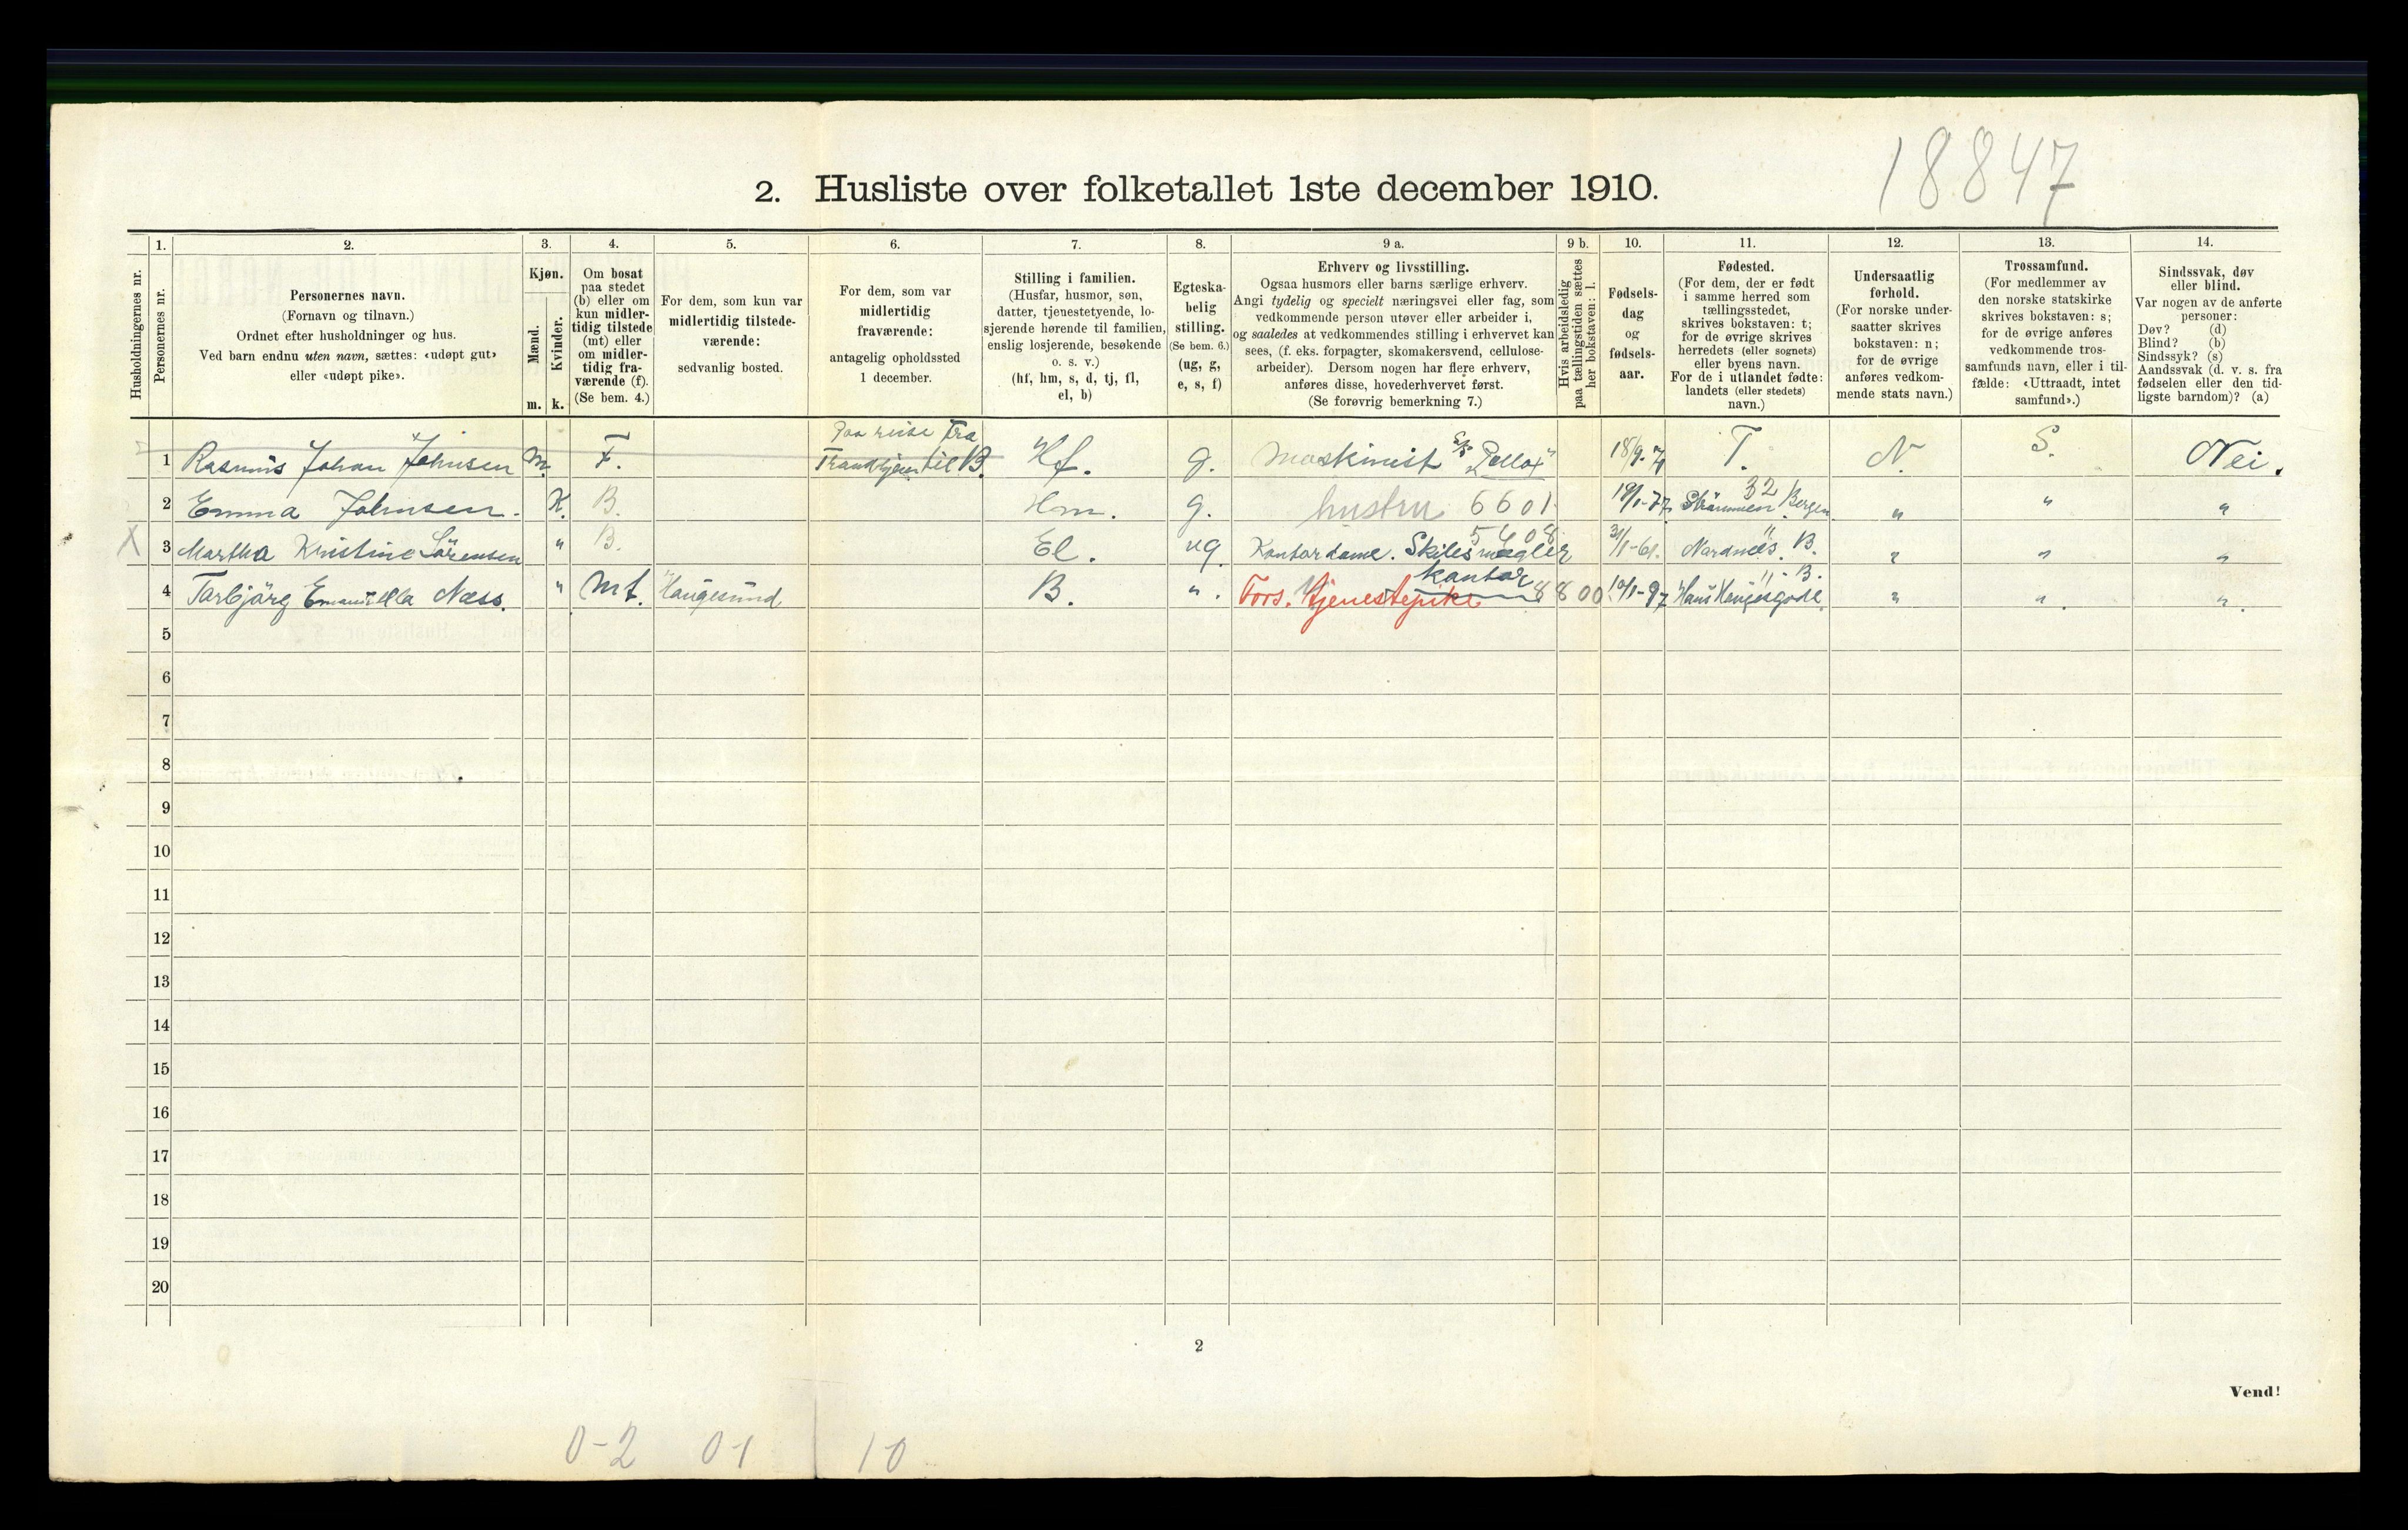 18847
2. Husliste over folketallet 1ste december 1910.
Husholdningernes nr.
1.
Personernes nr.
2.
Personernes navn.
(Fornavn og tilnavn.)
Ordnet efter husholdninger og hus.
Ved barn endnu uten navn, sættes: «udøpt gut»
eller «udøpt pike».
3.
Kjøn.
Mænd.
Kvinder.
m. k.
4.
Om bosat
paa stedet
(b) eller om
kun midler-
tidig tilstede
(mt) eller
om midler-
tidig fra-
værende (f).
(Se bem. 4.)
5.
For dem, som kun var
midlertidig tilstede-
værende:
sedvanlig bosted.
6.
For dem, som var
midlertidig
fraværende:
antagelig opholdssted
1 december.
7.
Stilling i familien.
(Husfar, husmor, søn,
datter, tjenestetyende, lo-
sjerende hørende til familien,
enslig losjerende, besøkende
o. s. v.)
(hf, hm, s, d, tj, fl,
el, b)
8.
Egteska-
belig
stilling.
(Se bem. 6.)
(ug, g,
e, s, f)
9 a.
Erhverv og livsstilling.
Ogsaa husmors eller barns særlige erhverv.
Angi tydelig og specielt næringsvei eller fag, som
vedkommende person utøver eller arbeider i,
og saaledes at vedkommendes stilling i erhvervet kan
sees, (f. eks. forpagter, skomakersvend, cellulose-
arbeider). Dersom nogen har flere erhverv,
anføres disse, hovederhvervet først.
(Se forøvrig bemerkning 7.)
9 b.
Hvis arbeidsledig
paa tællingstiden sættes
her bokstaven: l.
10.
Fødsels-
dag
og
fødsels-
aar.
11.
Fødested.
(For dem, der er født
i samme herred som
tællingsstedet,
skrives bokstaven: t;
for de øvrige skrives
herredets (eller sognets)
eller byens navn.
For de i utlandet fødte:
landets (eller stedets)
navn.)
12.
Undersaatlig
forhold.
(For norske under-
saatter skrives
bokstaven: n;
for de øvrige
anføres vedkom-
mende stats navn.)
13.
Trossamfund.
(For medlemmer av
den norske statskirke
skrives bokstaven: s;
for de øvrige anføres
vedkommende tros-
samfunds navn, eller i til-
fælde: «Uttraadt, intet
samfund».)
14.
Sindssvak, døv
eller blind.
Var nogen av de anførte
personer:
Døv? (d)
Blind? (b)
Sindssyk? (s)
Aandssvak (d. v. s. fra
fødselen eller den tid-
ligste barndom)? (a)
Paa reise fra
1 Rasmus Johan Johnsen M. F. Trondhjem til B. Hf. g. Maskinist S/S "Pollox" 18/9-74 T. N. S. Nei.
32
2 Emma Johnsen. K. B. Hm. g. hustru 6601 19/1-77 Strømmen Bergen " " "
5408 "
X 3 Martha Kristine Sörensen " B. El. ug. Kontordame. Skibsmægler 31/1-61. Nordnæs. B. " " "
kontor " B.
4 Torbjörg Emanuella Næss. " Mt. Haugesund B. ". Fors. tjenestepike 8800 10/1-97 Hans Haugesgade. " " "
5
6
7
8
9
10
11
12
13
14
15
16
17
18
19
20
2
Vend!
0-2 0-1 1-0